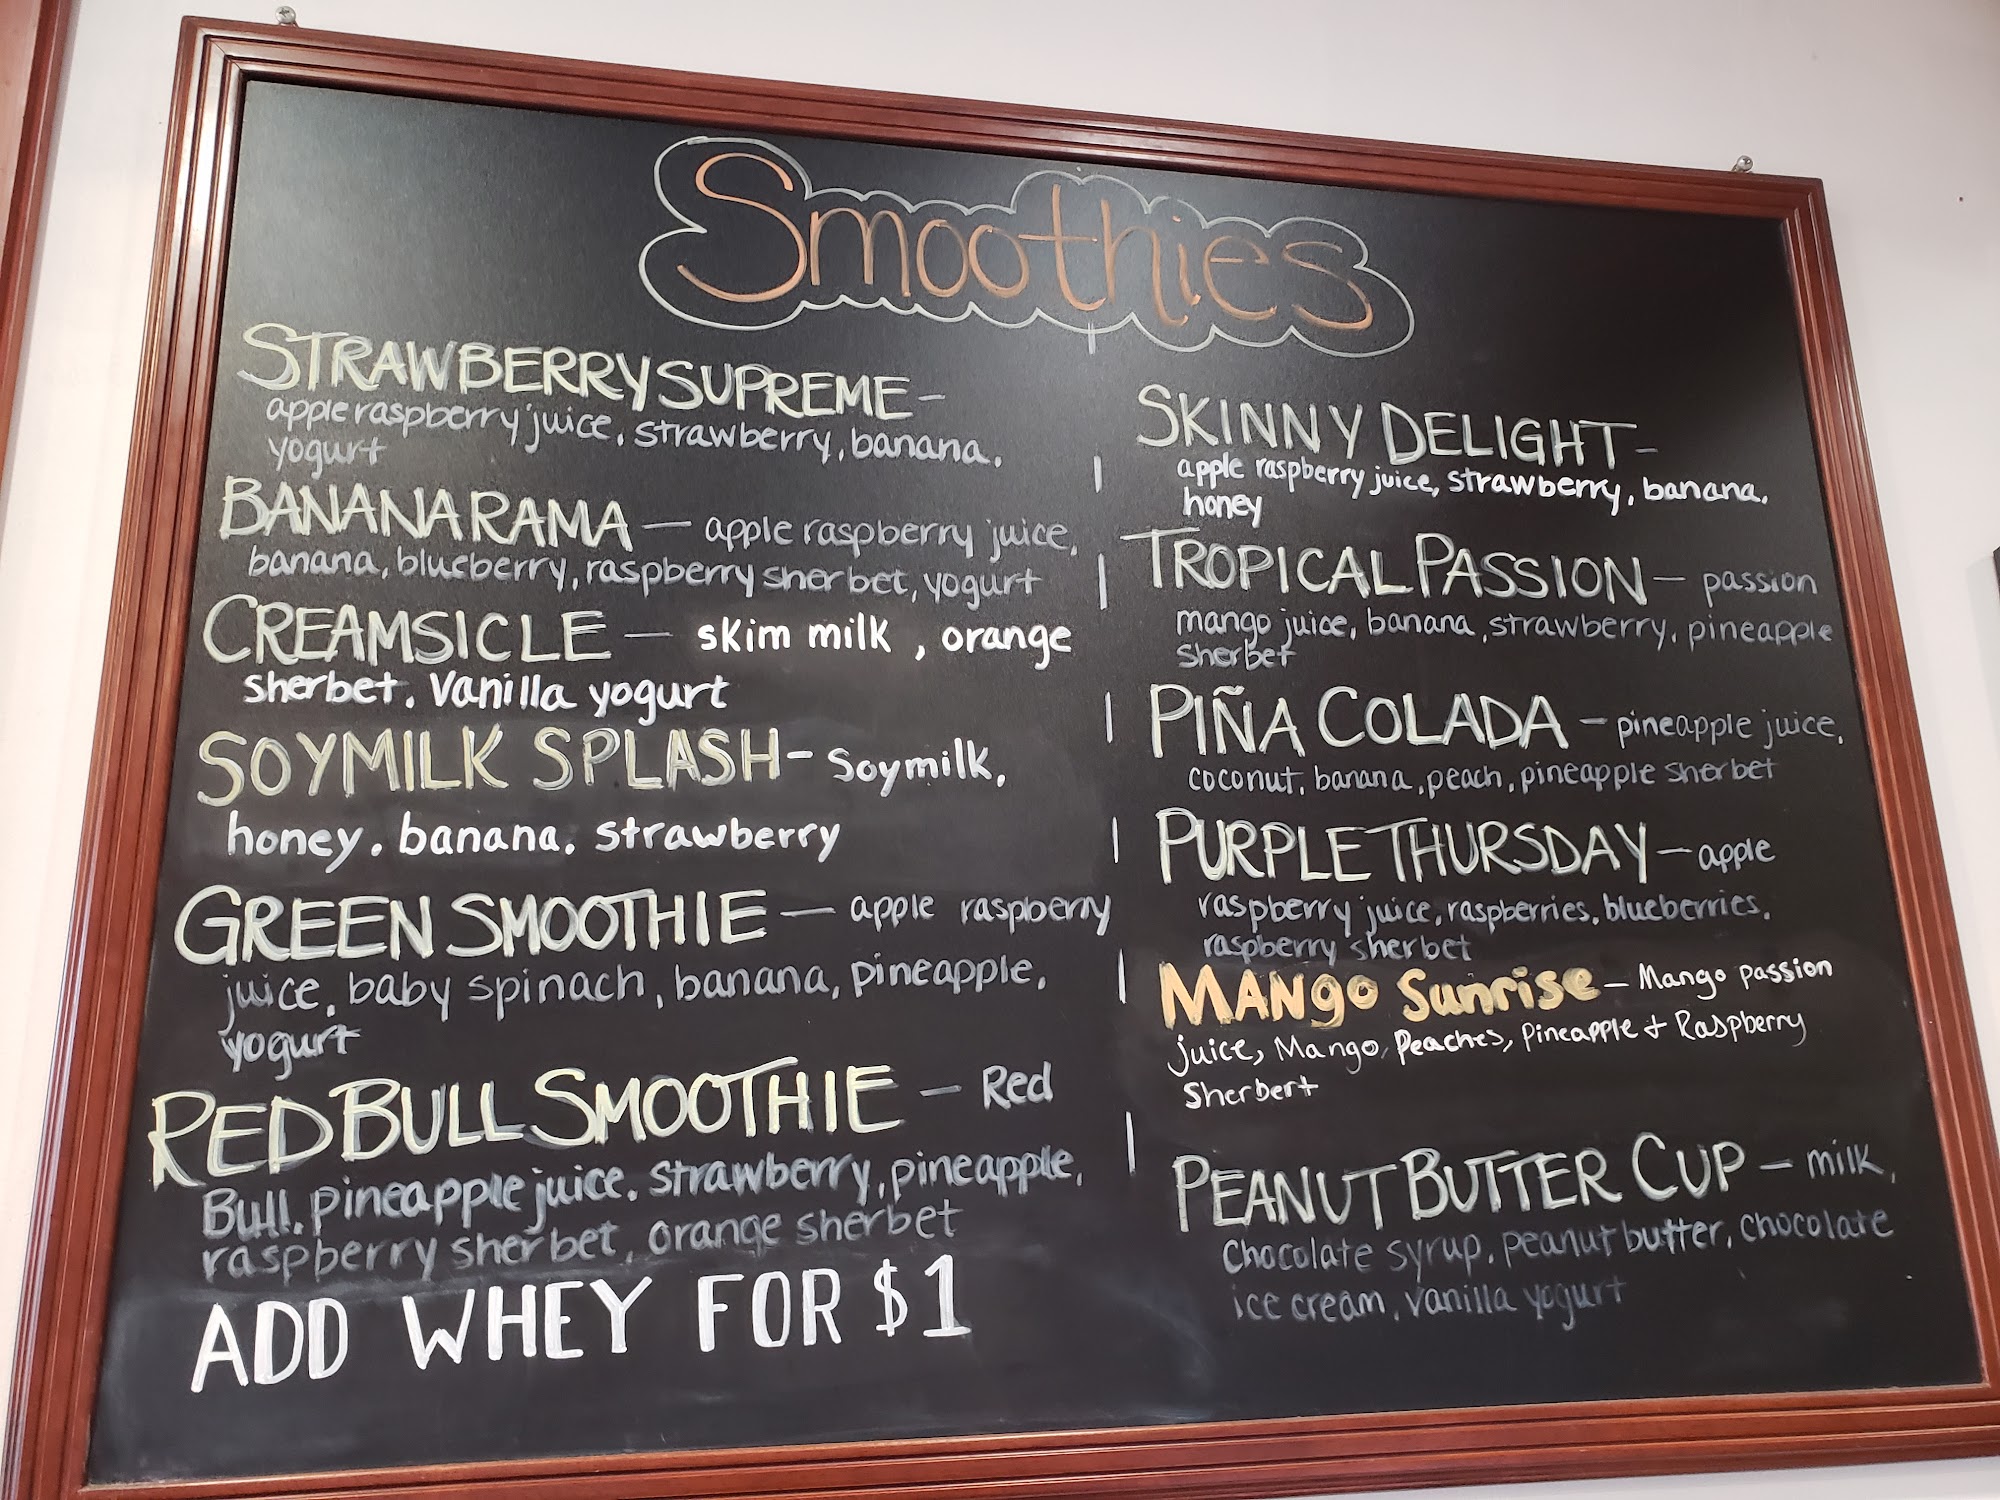 Smoothies
STRAWBERRY SUPREME -
apple raspberry juice, strawberry, banana,
yogurt
BANANARAMA — apple raspberry juice,
banana, blueberry, raspberry sherbet, yogurt
CREAMSICLE — skim milk, orange
sherbet, vanilla yogurt
SOYMILK SPLASH - Soymilk,
honey, banana, strawberry
GREEN SMOOTHIE — apple raspberry
juice, baby spinach, banana, pineapple,
yogurt
RED BULL SMOOTHIE — Red
Bull, pineapple juice, strawberry, pineapple,
raspberry sherbet, orange sherbet
ADD WHEY FOR $1
SKINNY DELIGHT -
apple raspberry juice, strawberry, banana,
honey
TROPICAL PASSION — passion
mango juice, banana, strawberry, pineapple
sherbet
PIÑA COLADA — pineapple juice,
coconut, banana, peach, pineapple sherbet
PURPLE THURSDAY — apple
raspberry juice, raspberries, blueberries,
raspberry sherbet
MANgo Sunrise — Mango passion
juice, Mango, Peaches, Pineapple + Raspberry
Sherbert
PEANUT BUTTER CUP — milk,
chocolate syrup, peanut butter, chocolate
ice cream, vanilla yogurt